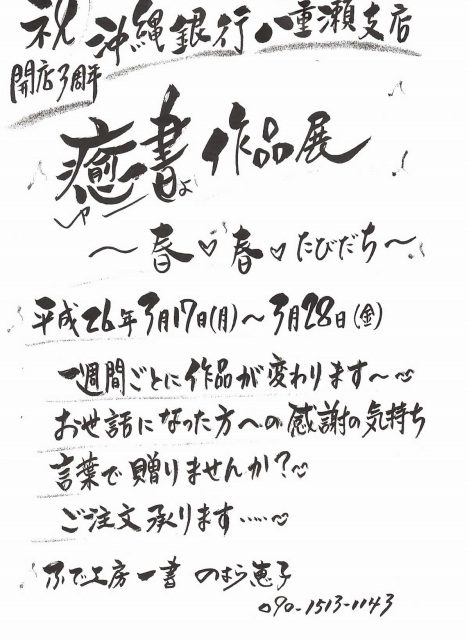 祝 沖縄銀行八重瀬支店
開店3周年
癒書 作品展
いやーしょ
〜春♡春♡たびだち〜
平成26年3月17日(月)〜3月28日(金)
一週間ごとに作品が変わります〜
お世話になった方への感謝の気持ち
言葉で贈りませんか?
ご注文承ります……
ふで工房一書 のはら恵子
090-1513-1143